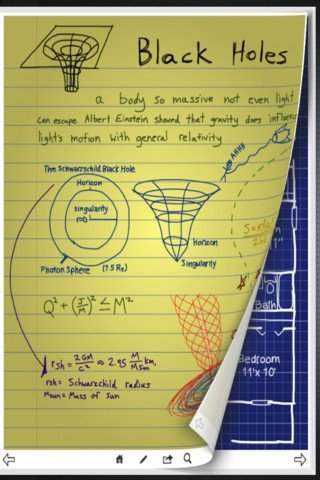 Black Holes
a body so massive not even light
can escape. Albert Einstein showed that gravity does influenc
light's motion with general relativity
AHHH
The Schwarzschild Black Hole
Horizon
singularity
r=0
Horizon
Singularity
Photon Sphere (1.5 Rs)
Q² + (J/M)² ≤ M²
rsh = 2GM/c² ≈ 2.95 M/Msun km,
rsh = Schwarzschild radius
Msun = Mass of Sun
Bath
Bedroom
11'x 10'